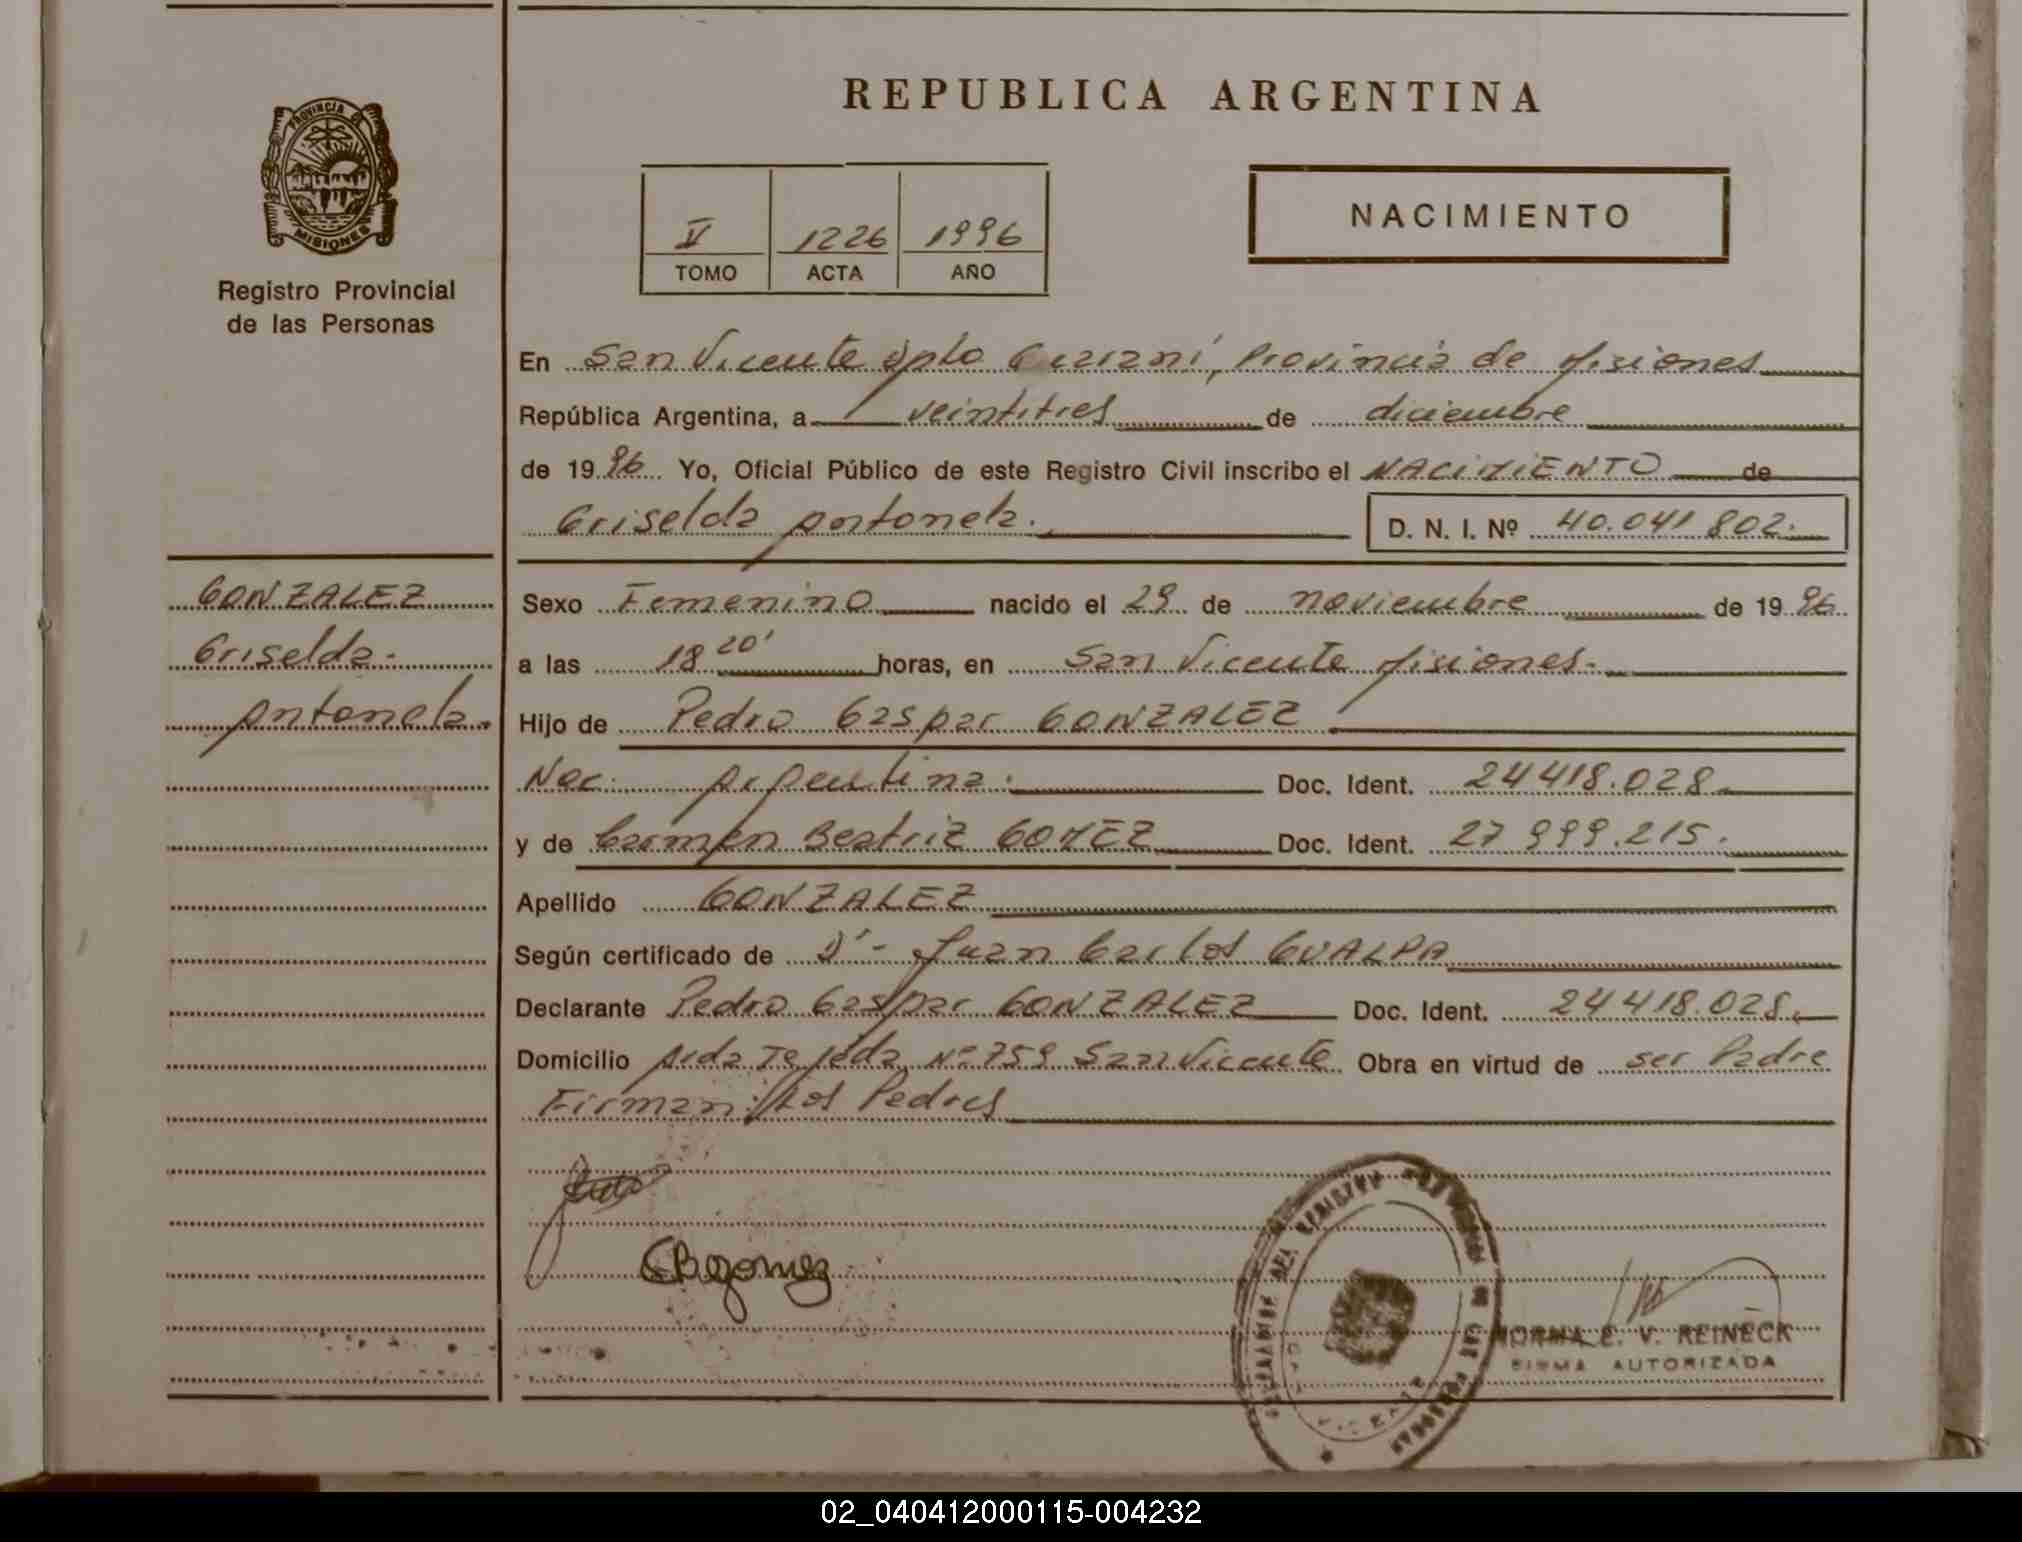 PROVINCIA DE
MISIONES
Registro Provincial
de las Personas
GONZALEZ
Griselda.
Antonela.
REPUBLICA ARGENTINA
V 1226 1996
TOMO ACTA AÑO
NACIMIENTO
En San Vicente Dpto Guaraní, Provincia de Misiones
República Argentina, a veintitres de diciembre
de 1996 Yo, Oficial Público de este Registro Civil inscribo el NACIMIENTO de
Griselda Antonela.
D. N. I. Nº 40.041 802.
Sexo Femenino nacido el 29 de noviembre de 1996
a las 18 20' horas, en San Vicente Misiones.
Hijo de Pedro Gaspar GONZALEZ
Nac. Argentina. Doc. Ident. 24 418.028.
y de Carmen Beatriz GOMEZ Doc. Ident. 27 999.215.
Apellido GONZALEZ
Según certificado de Juan Carlos GUALPA
Declarante Pedro Gaspar GONZALEZ Doc. Ident. 24 418.028.
Domicilio Avda Tejeda Nº 759 San Vicente Obra en virtud de ser Padre
Firman: Los Padres
CBgomez
NORMA E. V. REINECK
FIRMA AUTORIZADA
02_040412000115-004232